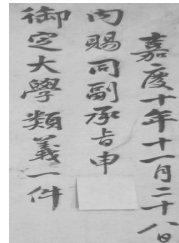 嘉慶十年十一月二十八日
內賜同副承旨申
御定大學類義一件